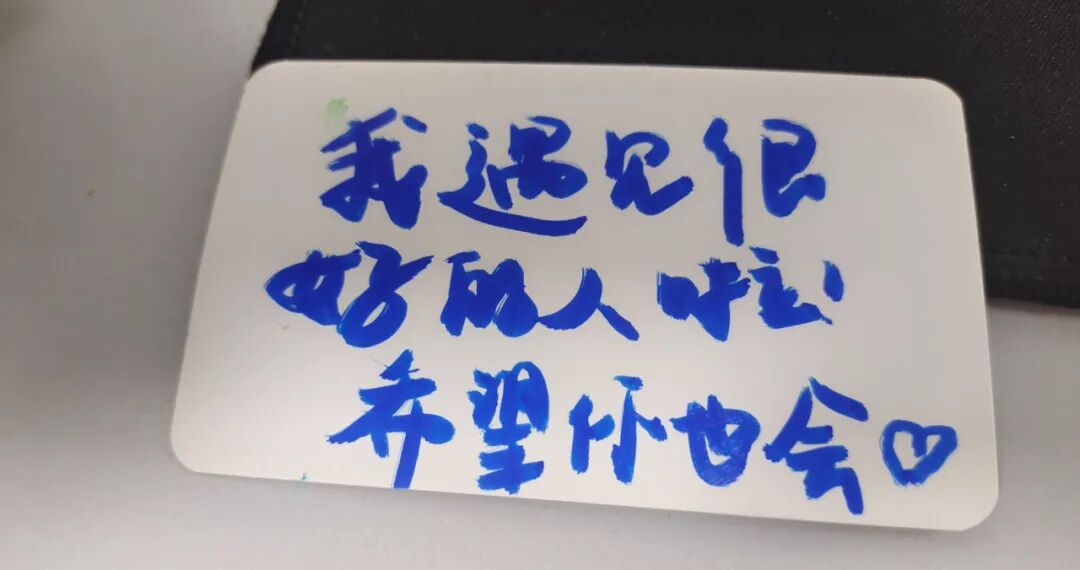 我遇见很
好的人啦
希望你也会♡